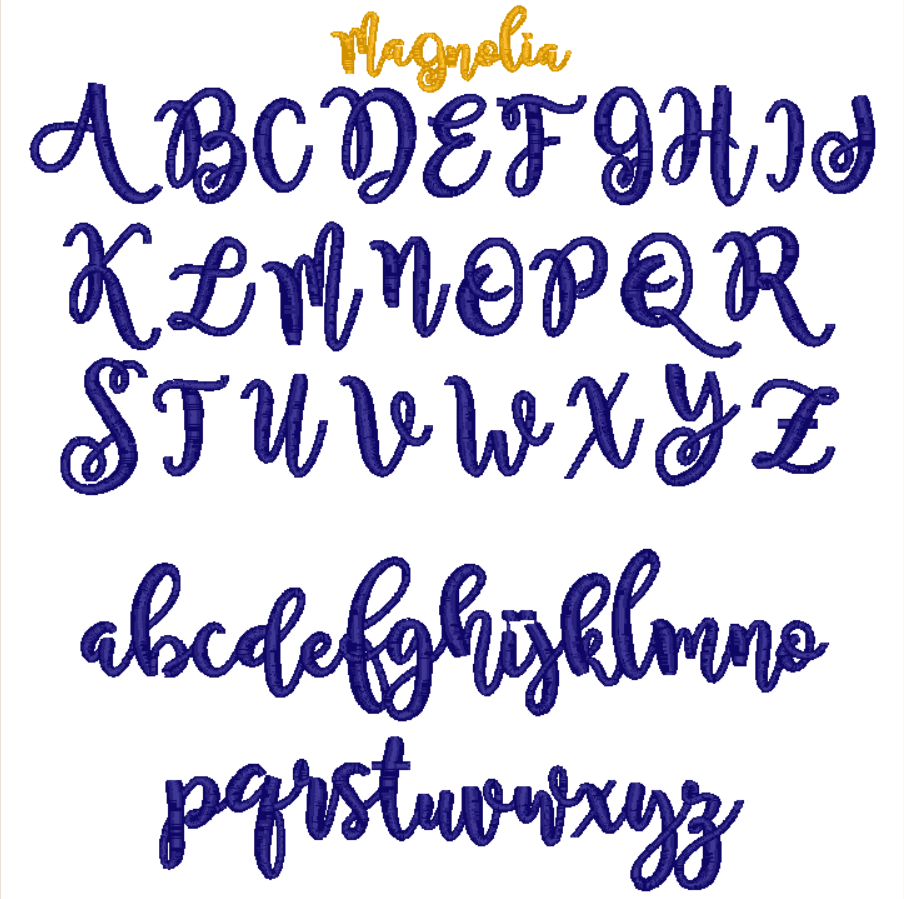 Magnolia
ABCDEFGHIJ
KLMNOPQR
STUVWXYZ
abcdefghijklmno
pqrstuvwxyz